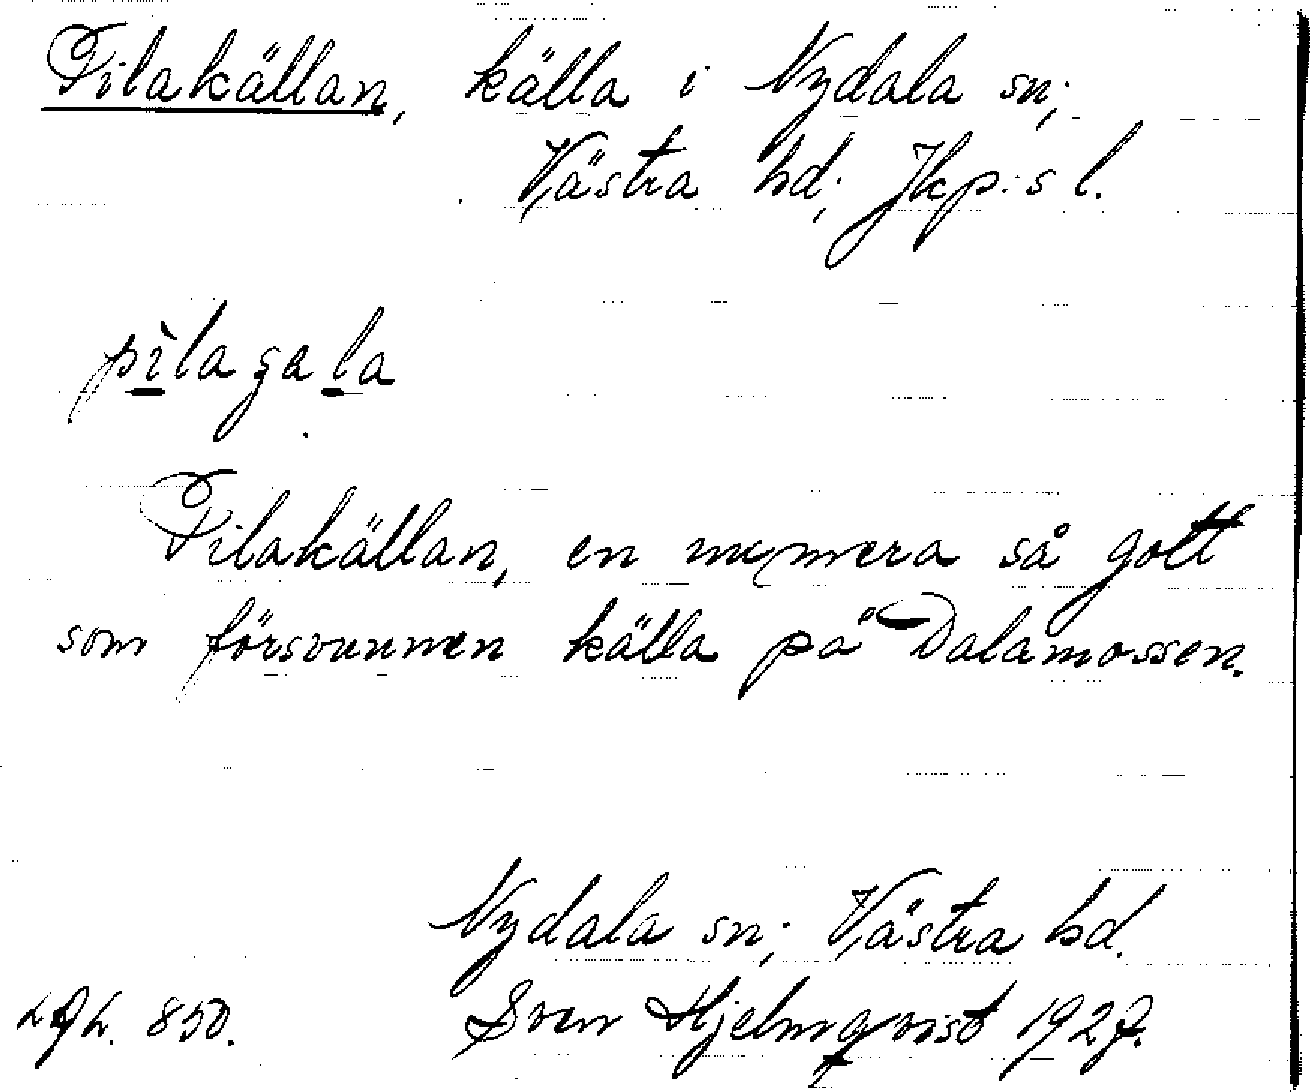 Pilakällan, källa i Nydala sn;
Västra hd; Jkp:s l.
pìlagala
Pilakällan, en numera så gott
som försvunnen källa på Dalamossen.
Nydala sn; Västra hd.
850. Sven Hjelmqvist 1927.